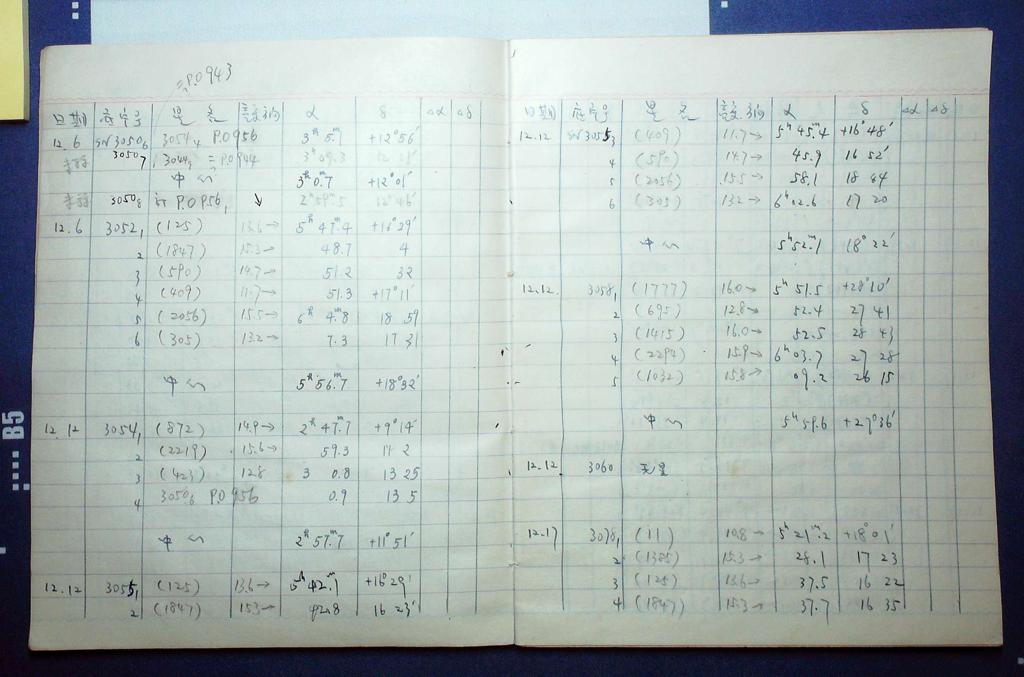 =P.O943
日期 底片号 星名 α δ Δα Δδ
12.6 SN 3050₆ 3054₄ P.O956 3ʰ 5.ᵐ +12°56′
3050₇ = P.O944 3ʰ 09.3
中心 3ʰ0.7ᵐ +12°01′
3050₈ P.O956₁ ↓ 2ʰ59ᵐ.5 12°46′
12.6 3052₁ (125) 13.6→ 5ʰ 47ᵐ.4 +16°29′
2 (1847) 15.3→ 48.7 4
3 (590) 14.7→ 51.2 32
4 (409) 11.7→ 51.3 +17°11′
5 (2056) 15.5→ 6ʰ 4ᵐ.8 18 59
6 (305) 13.2→ 7.3 17 31
中心 5ʰ56ᵐ.7 +18°32′
12.12 3054₁ (872) 14.9→ 2ʰ 47ᵐ.7 +9°14′
2 (2219) 15.6→ 59.3 11 2
3 (423) 12.8 3 0.8 13 25
4 3050₆ P.O956 0.9 13 5
中心 2ʰ57ᵐ.7 +11°51′
12.12 3055₁ (125) 13.6→ 5ʰ42ᵐ.1 +16°29′
2 (1847) 15.3→ 42.8 16 23′
日期 底片号 星名 α δ Δα Δδ
12.12 SN 3055₃ (409) 11.7→ 5ʰ45ᵐ.4 +16°48′
4 (590) 14.7→ 45.9 16 52′
5 (2056) 15.5→ 58.1 18 44
6 (305) 13.2→ 6ʰ02ᵐ.6 17 20
中心 5ʰ52ᵐ.1 18°22′
12.12. 3058₁ (1777) 16.0→ 5ʰ51ᵐ.5 +28°10′
2 (695) 12.8→ 52.4 27 41
3 (1415) 16.0→ 52.5 28 43
4 (2294) 15.9→ 6ʰ03ᵐ.7 27 28
5 (1032) 15.8→ 09.2 26 15
中心 5ʰ59ᵐ.6 +27°36′
12.12. 3060 无星
12.17 3078₁ (11) 10.8→ 5ʰ21ᵐ.2 +18°01′
2 (1385) 15.3→ 28.1 17 23
3 (125) 13.6→ 37.5 16 22
4 (1847) 15.3→ 37.7 16 35
B5